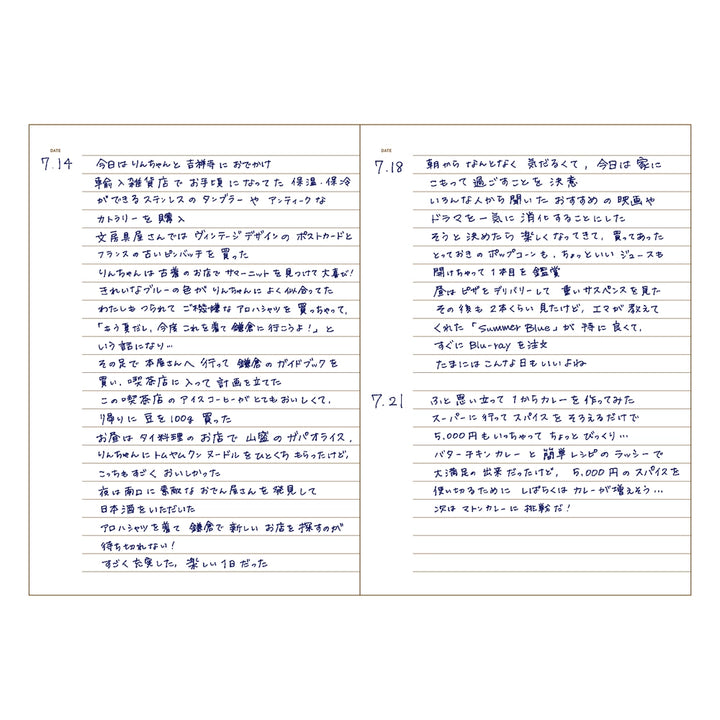 DATE
7.14
今日はりんちゃんと吉祥寺におでかけ
輸入雑貨店でお手頃になってた保温・保冷
ができるステンレスのタンブラーやアンティークな
カトラリーを購入
文房具屋さんではヴィンテージデザインのポストカードと
フランスの古いピンバッチを買った
りんちゃんは古着のお店でサマーニットを見つけて大喜び!
きれいなブルーの色がりんちゃんによく似合ってた
わたしもつられてご機嫌なアロハシャツを買っちゃって、
「もう夏だし、今度これを着て鎌倉に行こうよ!」と
いう話になり…
その足で本屋さんへ行って鎌倉のガイドブックを
買い、喫茶店に入って計画を立てた
この喫茶店のアイスコーヒーがとてもおいしくて、
帰りに豆を100g買った
お昼はタイ料理のお店で山盛のガパオライス。
りんちゃんにトムヤムクンヌードルをひとくちもらったけど、
こっちもすごくおいしかった
夜は南口に素敵なおでん屋さんを発見して
日本酒をいただいた
アロハシャツを着て鎌倉で新しいお店を探すのが
待ち切れない!
すごく充実した、楽しい1日だった
DATE
7.18
朝からなんとなく気だるくて、今日は家に
こもって過ごすことを決意
いろんな人から聞いたおすすめの映画や
ドラマを一気に消化することにした
そうと決めたら楽しくなってきて、買ってあった
とっておきのポップコーンも、ちょっといいジュースも
開けちゃって1本目を鑑賞
昼はピザをデリバリーして重いサスペンスを見た
その後も2本くらい見たけど、エマが教えて
くれた「Summer Blue」が特に良くて、
すぐにBlu-rayを注文
たまにはこんな日もいいよね
7.21
ふと思い立って1からカレーを作ってみた
スーパーに行ってスパイスをそろえるだけで
5,000円もいっちゃってちょっとびっくり…
バターチキンカレーと簡単レシピのラッシーで
大満足の出来だったけど、5,000円のスパイスを
使い切るためにしばらくはカレーが増えそう…
次はマトンカレーに挑戦だ!